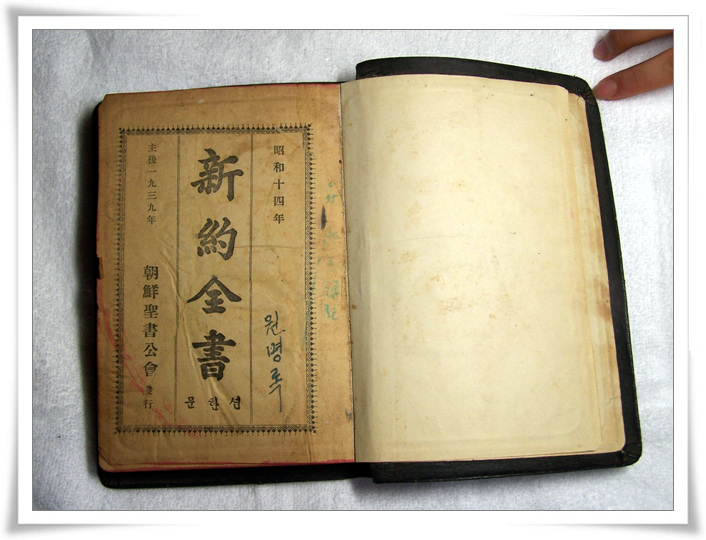 昭和十四年
원명록
新約全書
션한문
主後一九三九年
朝鮮聖書公會 發行